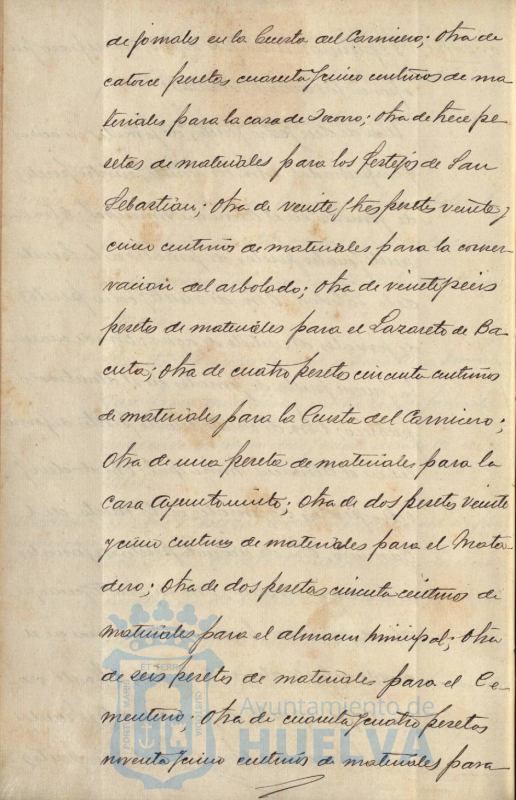 de jornales en la Cuesta del Carnicero; Otra de
catorce pesetas cuarenta y cinco centimos de ma
teriales para la casa de Socorro; Otra de trece pe
setas de materiales para los festejos de San
Sebastian; Otra de veinte y tres pesetas veinte y
cinco centimos de materiales para la conser-
vacion del arbolado; Otra de veinte y seis
pesetas de materiales para el Lazareto de Ba
cuta; Otra de cuatro pesetas cincuenta centimos
de materiales para la Cuesta del Carnicero;
Otra de una peseta de materiales para la
casa Ayuntamiento; Otra de dos pesetas veinte
y cinco centimos de materiales para el Mata-
dero; Otra de dos pesetas cincuenta centimos de
materiales para el almacen municipal; Otra
de seis pesetas de materiales para el Ce-
menterio; Otra de cuarenta y cuatro pesetas
noventa y cinco centimos de materiales para
Ayuntamiento de
HUELVA